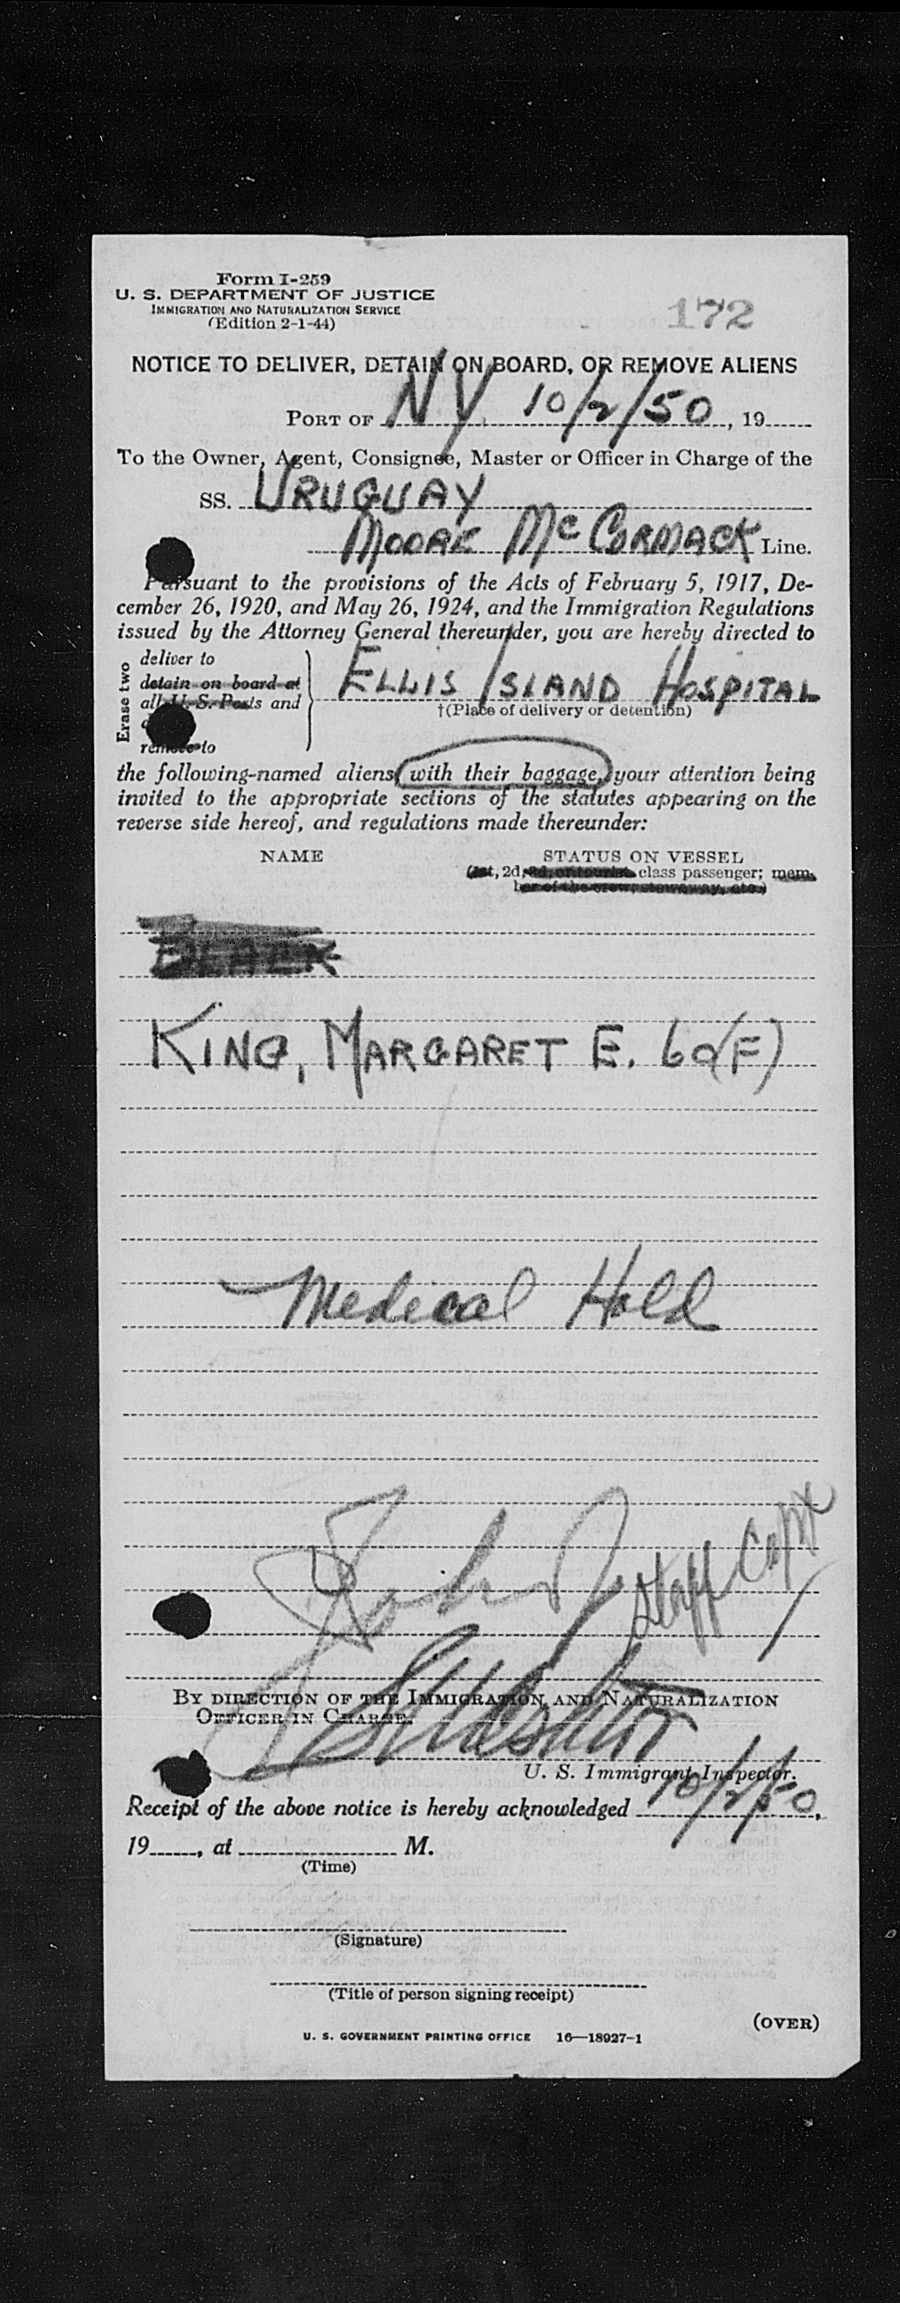 Form I-259
U. S. DEPARTMENT OF JUSTICE
IMMIGRATION AND NATURALIZATION SERVICE
(Edition 2-1-44)
172
NOTICE TO DELIVER, DETAIN ON BOARD, OR REMOVE ALIENS
PORT OF NY 10/2/50, 19
To the Owner, Agent, Consignee, Master or Officer in Charge of the
SS. URUGUAY
MOORE McCORMACK Line.
Pursuant to the provisions of the Acts of February 5, 1917, De-
cember 26, 1920, and May 26, 1924, and the Immigration Regulations
issued by the Attorney General thereunder, you are hereby directed to
Erase two
deliver to
detain on board at
all U. S. Ports and
remove to
ELLIS ISLAND HOSPITAL
†(Place of delivery or detention)
the following-named aliens (with their baggage,) your attention being
invited to the appropriate sections of the statutes appearing on the
reverse side hereof, and regulations made thereunder:
NAME STATUS ON VESSEL
(1st, 2d, 3d, or tourist class passenger; mem-
ber of the crew, stowaway, etc.)
BLACK
KING, MARGARET E. 60(F)
Medical Hold
John J
Staff Copy
BY DIRECTION OF THE IMMIGRATION AND NATURALIZATION
OFFICER IN CHARGE.
U. S. Immigrant Inspector.
Receipt of the above notice is hereby acknowledged 10/2/50,
19, at M.
(Time)
(Signature)
(Title of person signing receipt)
(OVER)
U. S. GOVERNMENT PRINTING OFFICE 16—18927-1